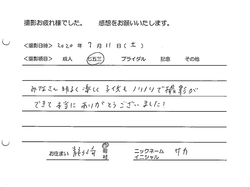 撮影お疲れ様でした。 感想をお願いいたします。
<撮影日時> 2020年 7月 11日(土)
<撮影項目> 成人 七五三 ブライダル 記念 その他
みなさん明るく楽しく子供もノリノリで撮影が
できて本当にありがとうございました!
お住まい 静岡市 ニックネーム サカ
イニシャル